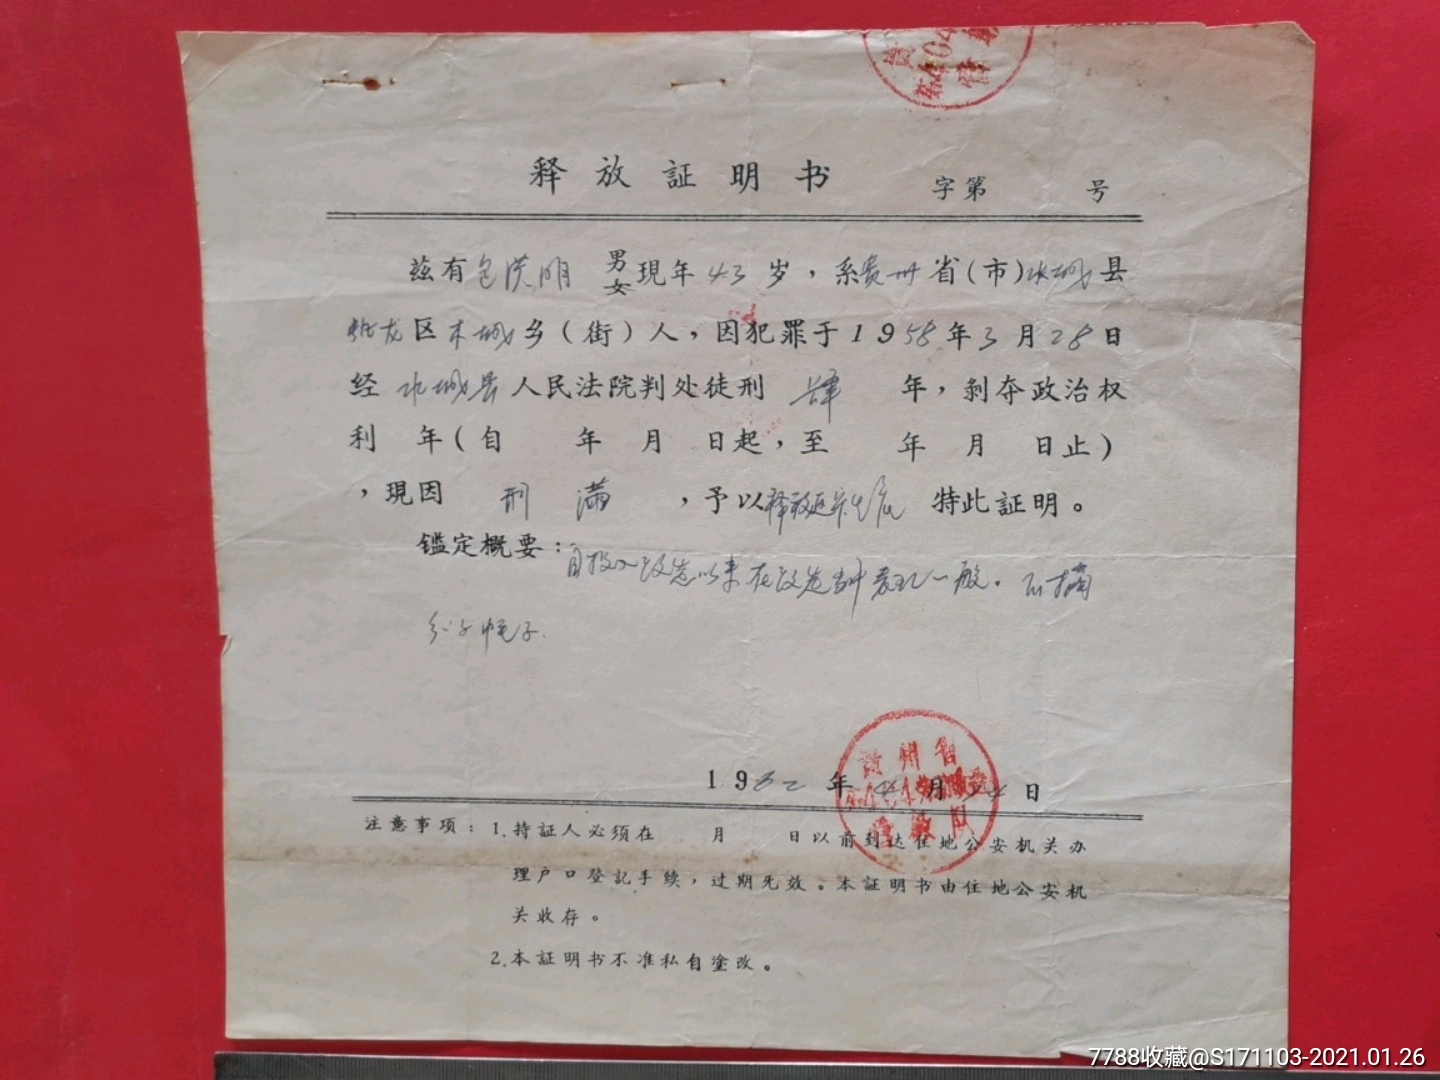 释放証明书 字第 号
兹有包洪明 男女現年43岁，系贵州省(市)水城县
龙区木城乡（街）人，因犯罪于1958年3月28日
经水城县人民法院判处徒刑肆年，剝夺政治权
利 年(自 年 月 日起，至 年 月 日止)
，現因刑满，予以释放 特此証明。
鑑定概要：自投入改造以来在改造当中表现一般。不摘
分子帽子.
贵州省
1962年4月24日
注意事项：1.持証人必须在 月 日以前到达住地公安机关办
理户口登記手续，过期失效。本証明书由住地公安机
关收存。
2.本証明书不准私自塗改。
7788收藏@S171103-2021.01.26